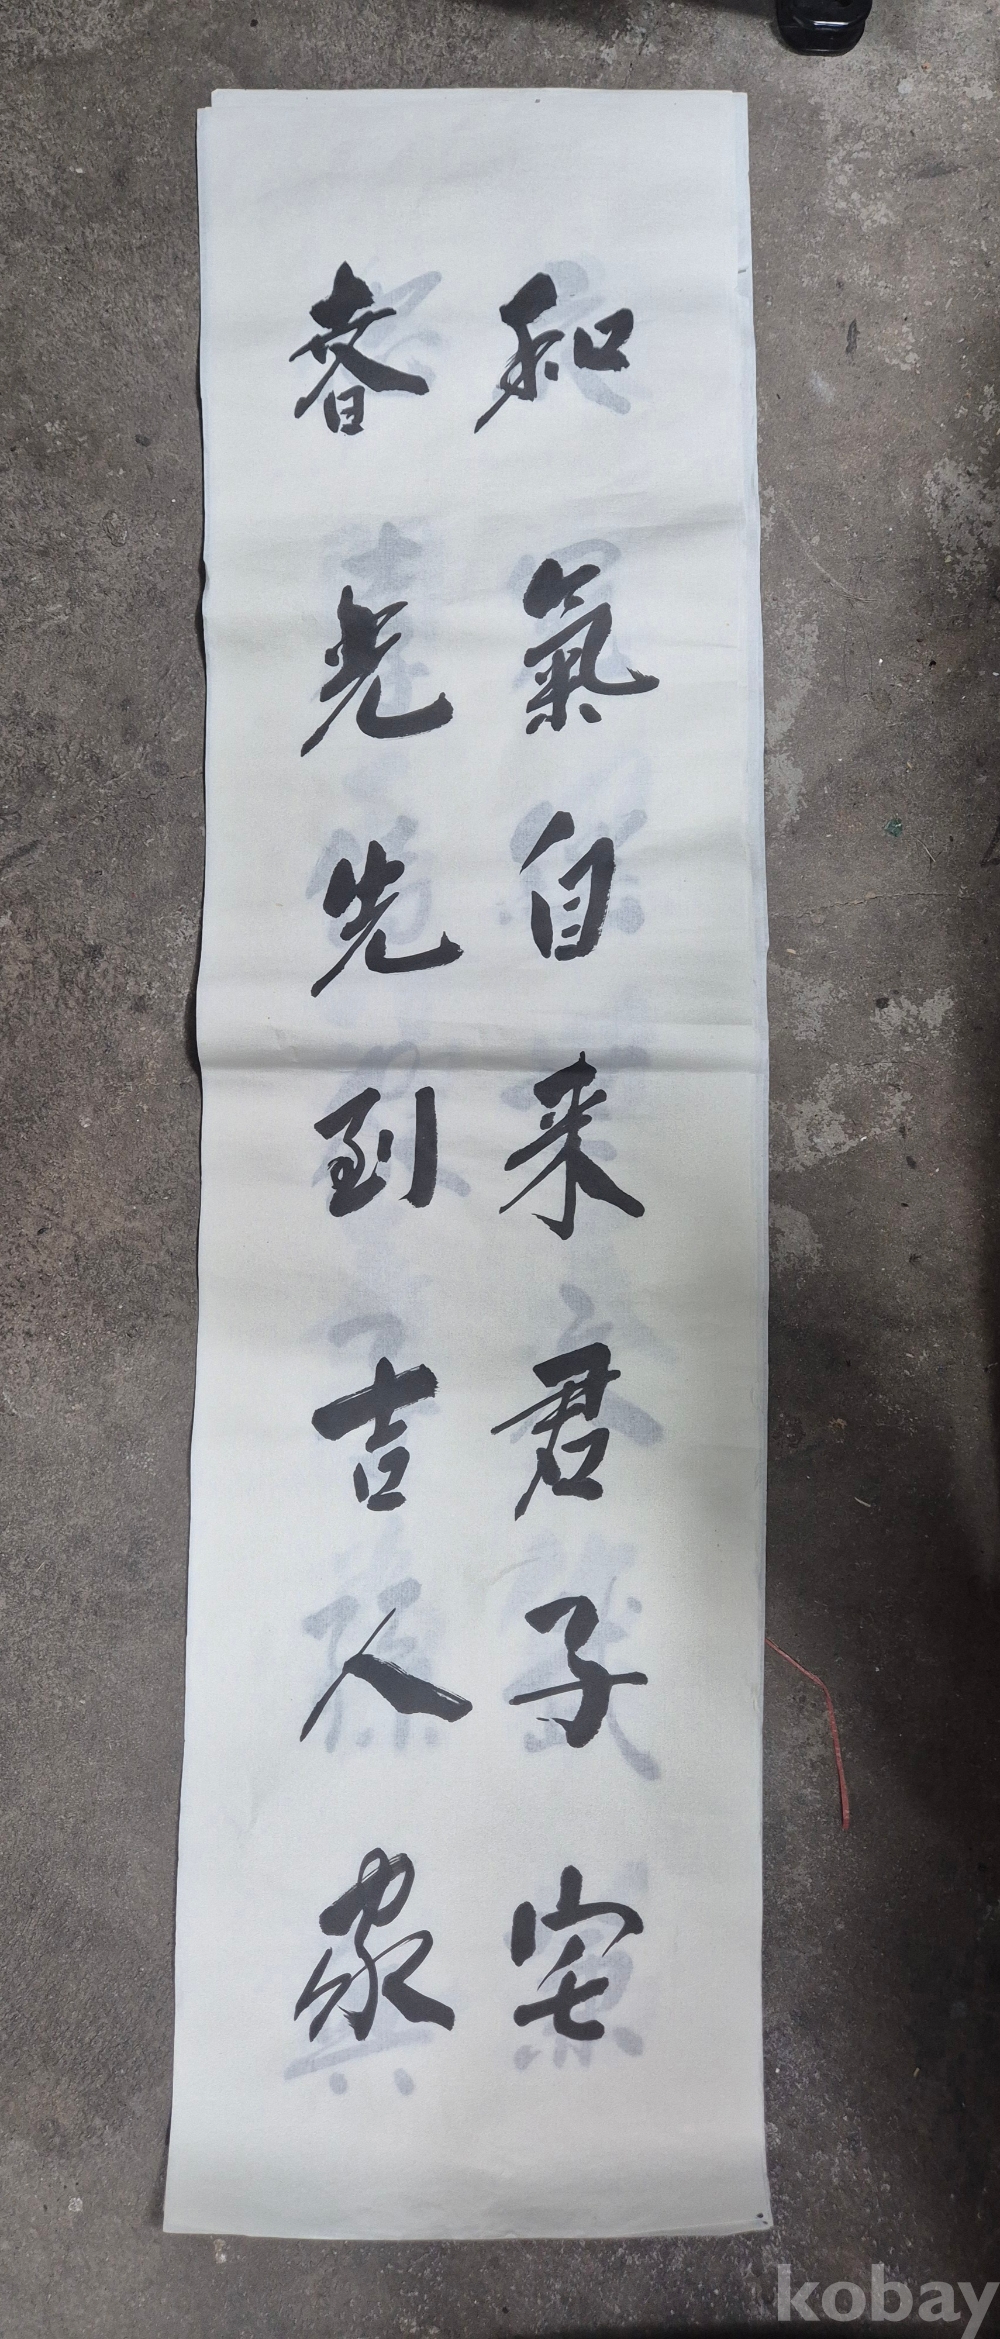 和氣自来君子宅
春光先到吉人家
kobay